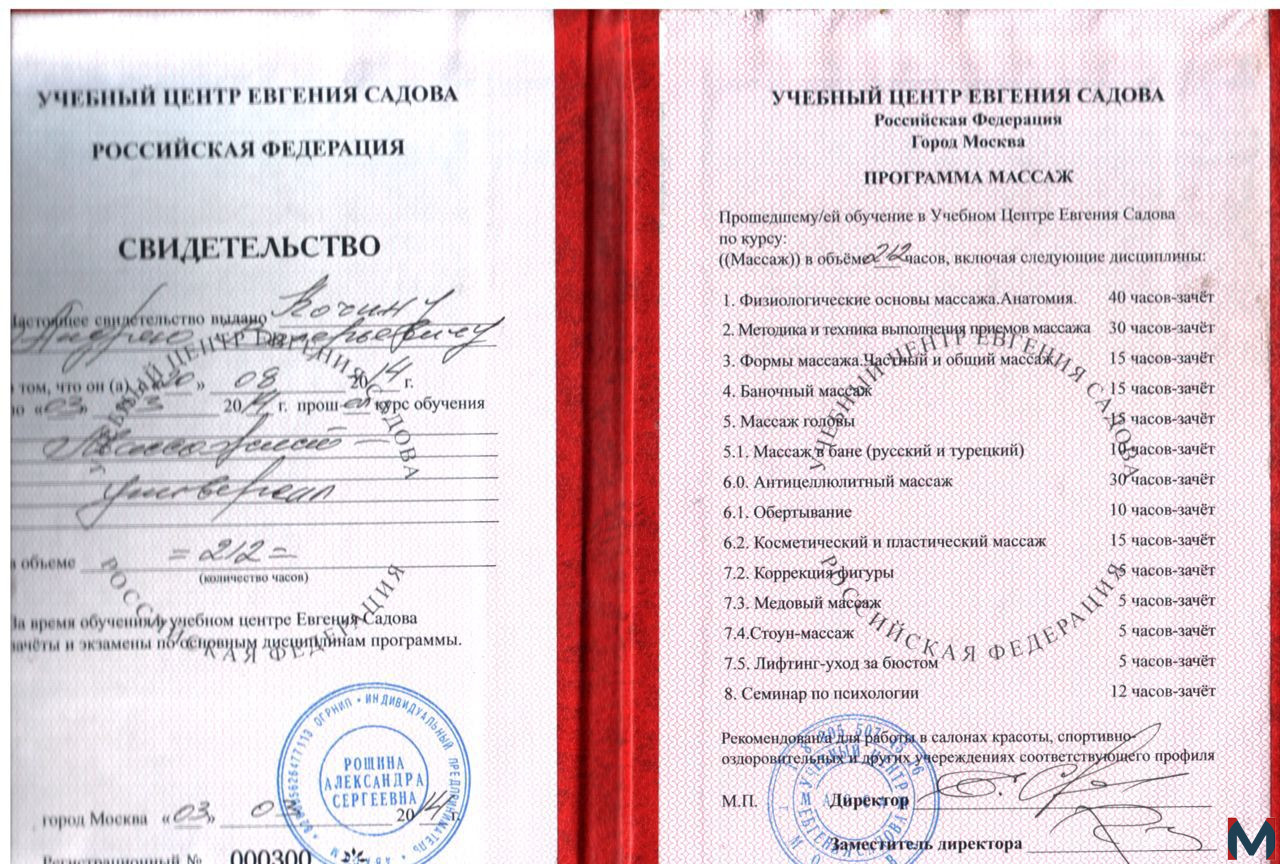 УЧЕБНЫЙ ЦЕНТР ЕВГЕНИЯ САДОВА
РОССИЙСКАЯ ФЕДЕРАЦИЯ
СВИДЕТЕЛЬСТВО
Настоящее свидетельство выдано Кочину
Андрею Валерьевичу
в том, что он (а) с «20» 08 2014 г.
по «03» 2014 г. прош-ел курс обучения
Массажист –
универсал
в объеме = 212 =
(количество часов)
За время обучения в учебном центре Евгения Садова
зачёты и экзамены по основным дисциплинам программы.
УЧЕБНЫЙ ЦЕНТР ЕВГЕНИЯ САДОВА
РОССИЙСКАЯ ФЕДЕРАЦИЯ
ИНДИВИДУАЛЬНЫЙ ПРЕДПРИНИМАТЕЛЬ
ОГРНИП
РОШИНА
АЛЕКСАНДРА
СЕРГЕЕВНА
город Москва «03» 2014 г.
Регистрационный № 000300
УЧЕБНЫЙ ЦЕНТР ЕВГЕНИЯ САДОВА
Российская Федерация
Город Москва
ПРОГРАММА МАССАЖ
Прошедшему/ей обучение в Учебном Центре Евгения Садова
по курсу:
((Массаж)) в объёме 212 часов, включая следующие дисциплины:
1. Физиологические основы массажа.Анатомия. 40 часов-зачёт
2. Методика и техника выполнения приемов массажа 30 часов-зачёт
3. Формы массажа.Частный и общий массаж. 15 часов-зачёт
4. Баночный массаж 15 часов-зачёт
5. Массаж головы 15 часов-зачёт
5.1. Массаж в бане (русский и турецкий) 10 часов-зачёт
6.0. Антицеллюлитный массаж 30 часов-зачёт
6.1. Обертывание 10 часов-зачёт
6.2. Косметический и пластический массаж 15 часов-зачёт
7.2. Коррекция фигуры 5 часов-зачёт
7.3. Медовый массаж 5 часов-зачёт
7.4.Стоун-массаж 5 часов-зачёт
7.5. Лифтинг-уход за бюстом 5 часов-зачёт
8. Семинар по психологии 12 часов-зачёт
УЧЕБНЫЙ ЦЕНТР ЕВГЕНИЯ САДОВА
РОССИЙСКАЯ ФЕДЕРАЦИЯ
Рекомендован/а для работы в салонах красоты, спортивно-
оздоровительных и других учереждениях соответствующего профиля
М.П. Директор
Заместитель директора
УЧЕБНЫЙ ЦЕНТР
ЕВГЕНИЯ САДОВА
M